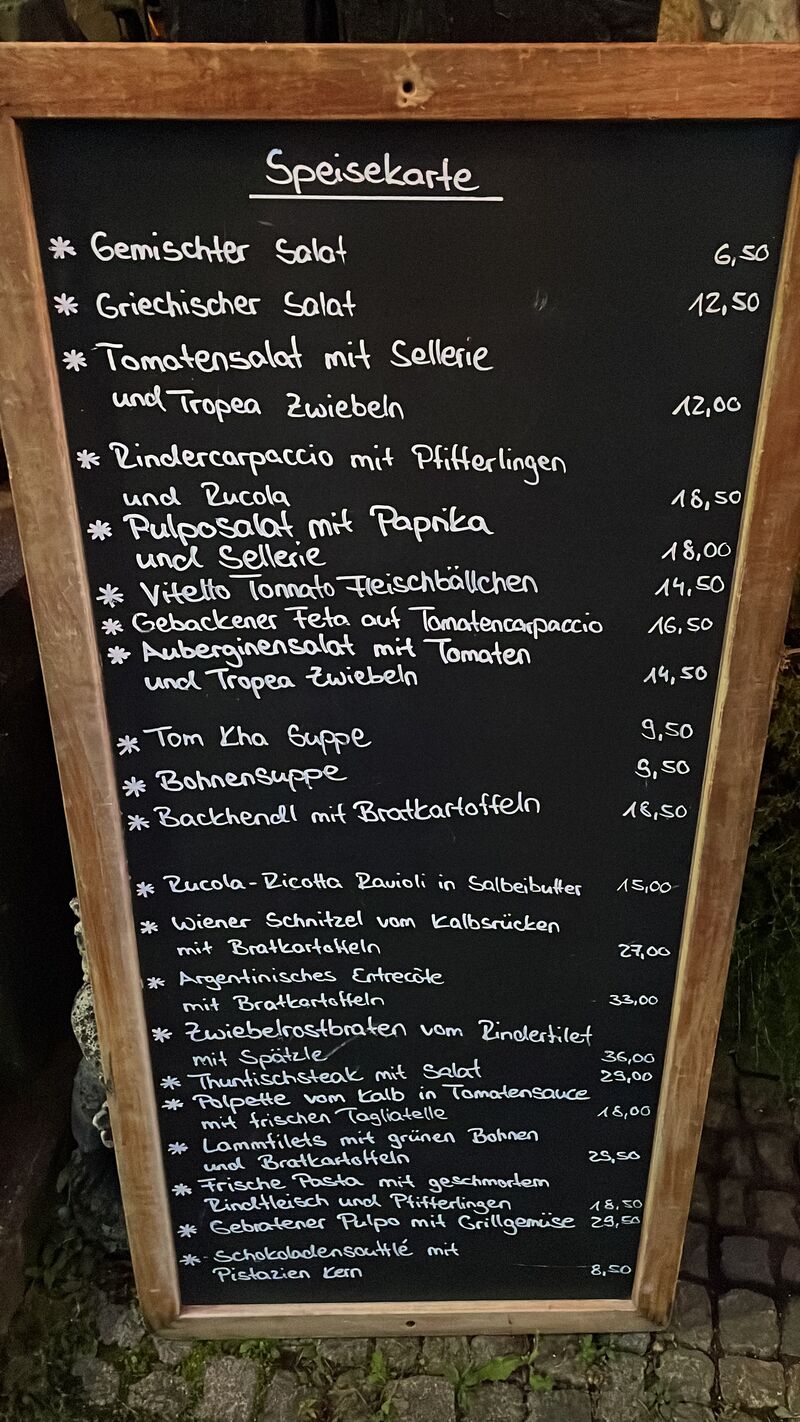 Speisekarte
* Gemischter Salat 6,50
* Griechischer Salat 12,50
* Tomatensalat mit Sellerie
und Tropea Zwiebeln 12,00
* Rindercarpaccio mit Pfifferlingen
und Rucola 18,50
* Pulposalat mit Paprika
und Sellerie 18,00
* Vitello Tonnato Fleischbällchen 14,50
* Gebackener Feta auf Tomatencarpaccio 16,50
* Auberginensalat mit Tomaten
und Tropea Zwiebeln 14,50
* Tom Kha Suppe 9,50
* Bohnensuppe 9,50
* Backhendl mit Bratkartoffeln 18,50
* Rucola-Ricotta Ravioli in Salbeibutter 15,00
* Wiener Schnitzel vom Kalbsrücken
mit Bratkartoffeln 27,00
* Argentinisches Entrecôte
mit Bratkartoffeln 33,00
* Zwiebelrostbraten vom Rinderfilet
mit Spätzle 36,00
* Thunfischsteak mit Salat 29,00
* Polpette vom Kalb in Tomatensauce
mit frischen Tagliatelle 18,00
* Lammfilets mit grünen Bohnen
und Bratkartoffeln 29,50
* Frische Pasta mit geschmortem
Rindfleisch und Pfifferlingen 18,50
* Gebratener Pulpo mit Grillgemüse 29,50
* Schokoladensoufflé mit
Pistazien Kern 8,50